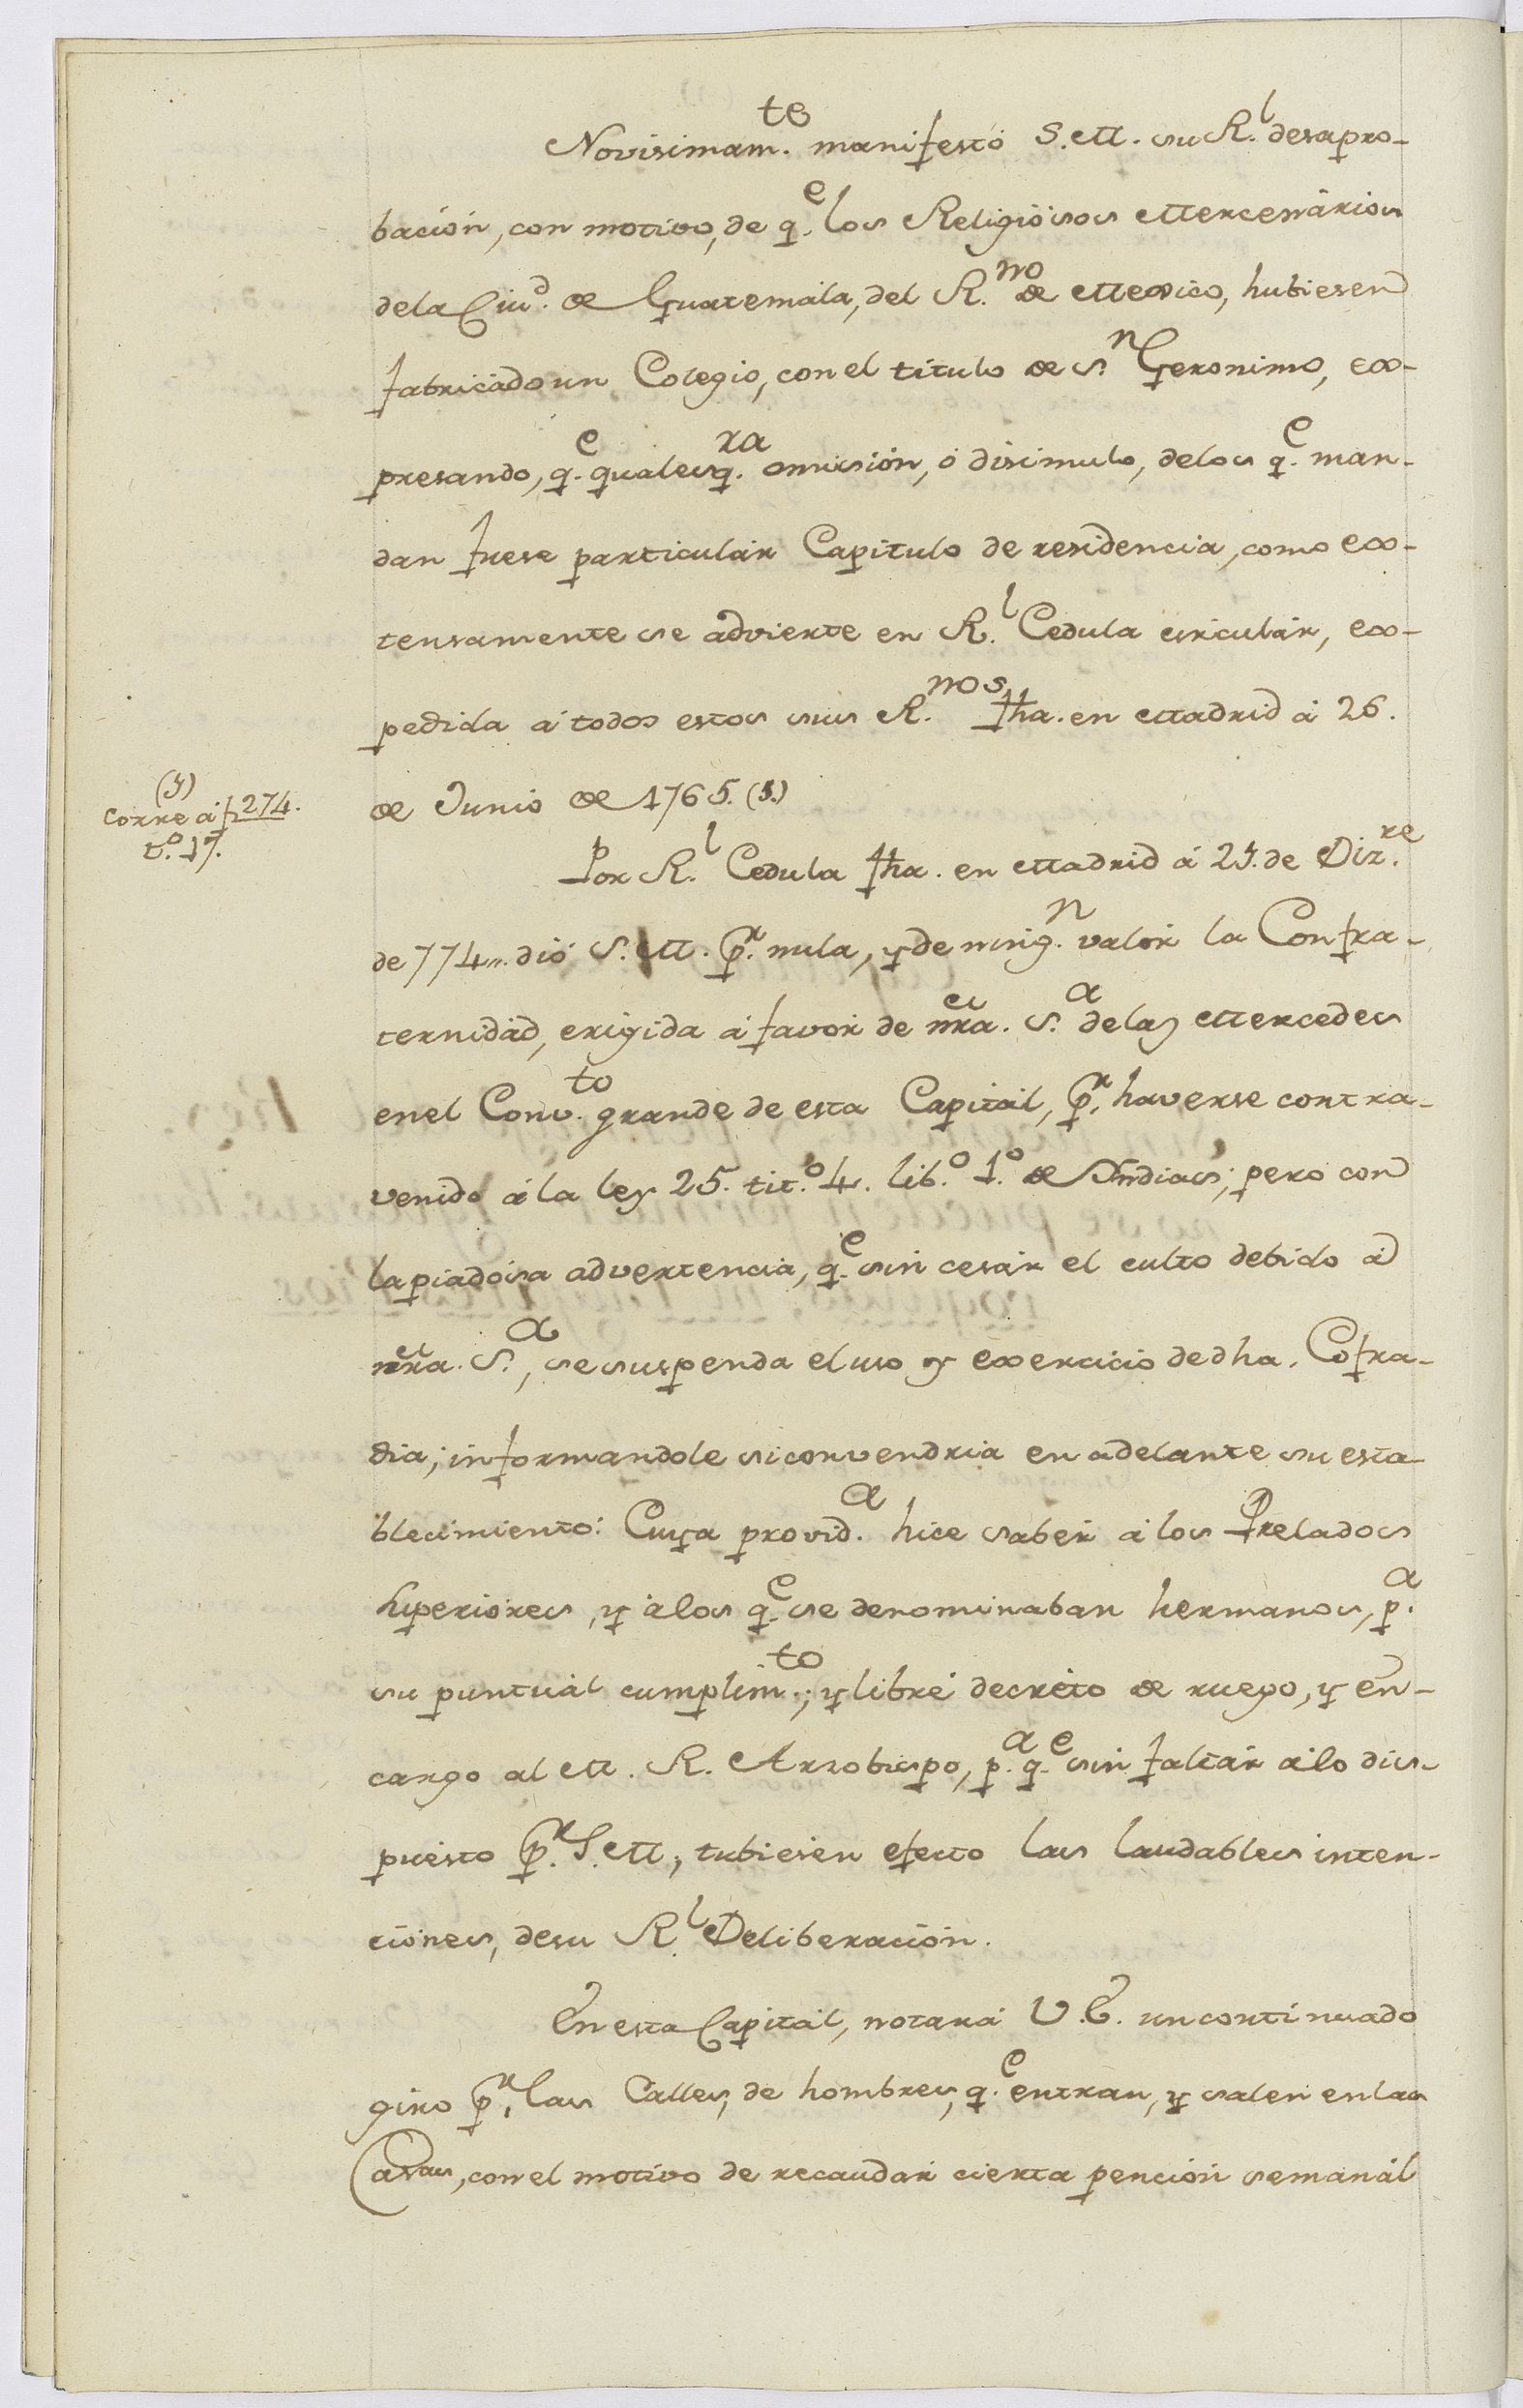 Novisimam.te manifestó S.M. su R.l desapro-
bacion, con motivo, de q.e los Religiosos Mercenarios
dela Ciud. de Guatemala, del R.no de Mexico, hubiesen
fabricado un Colegio, con el titulo de S.n Geronimo, ex-
presando, q.e qualesq.ra omision, ó disimulo, delos q.e man-
dan fuese particular Capitulo de residencia, como ex-
tensamente se advierte en R.l Cedula circular, ex-
pedida á todos estos sus R.nos fha. en Madrid á 26.
(y)
corre á f 274.
t.o 17.
de Junio de 1765. (y.)
Por R.l Cedula fha. en Madrid á 25. de Diz.re
de 774,,. dió S.M. p.r nula, y de ning.n valor la Confra-
ternidad, erigida á favor de nra. S.a delas Mercedes
enel Conv.to grande de esta Capital, p.r haverse contra-
venido á la ley 25. tit.o 4. lib.o 1.o de Yndias; pero con
la piadosa advertencia, q.e sin cesar el culto debido á
nra. S.a, se suspenda el uso y exercicio de dha. Cofra-
dia; informandole si convendria en adelante su esta-
blecimiento: Cuya provid.a hice saber á los Prelados
superiores, y á los q.e se denominaban hermanos, p.a
su puntual cumplim.to; y libré decreto de ruego, y en-
cargo al M. R. Arzobispo, p.a q.e sin faltar á lo dis-
puesto p.r S.M, tubiesen efecto las laudables inten-
ciones, desu R.l Deliberacion.
En esta Capital, notará V.E. un continuado
giro p.r las Calles, de hombres, q.e entran, y salen enlas
Casas, con el motivo de recaudar cierta pencion semanal